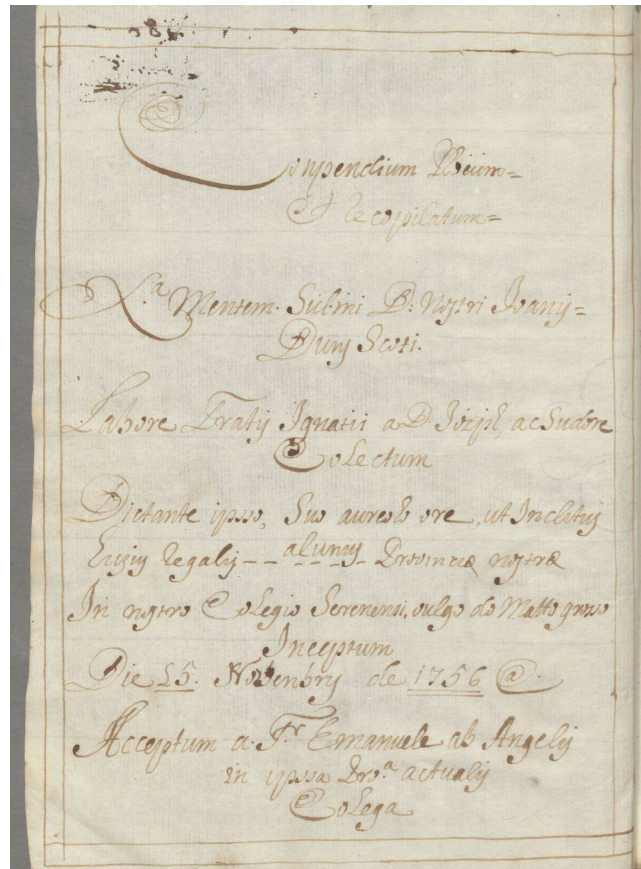 Conpendium
Et Recopilatum=
Mentem. Subtini D: nostri Joanis=
Duns Scoti.
Labore Fratis Ignatii a D. Joseph, ac Sudore
Colectum
Dictante ipso, Suo aureolo ore, ut Inclitus
Eujus Regalis -- alunus - Provinciæ nostræ
In nostro Colegio Serenensi, vulgo do Matto grosso
Inceptum
Die 15. Novenbris de 1756
Acceptum a Fr Emanuele ab Angelis
in ipssa Pro.a actualis
Colega